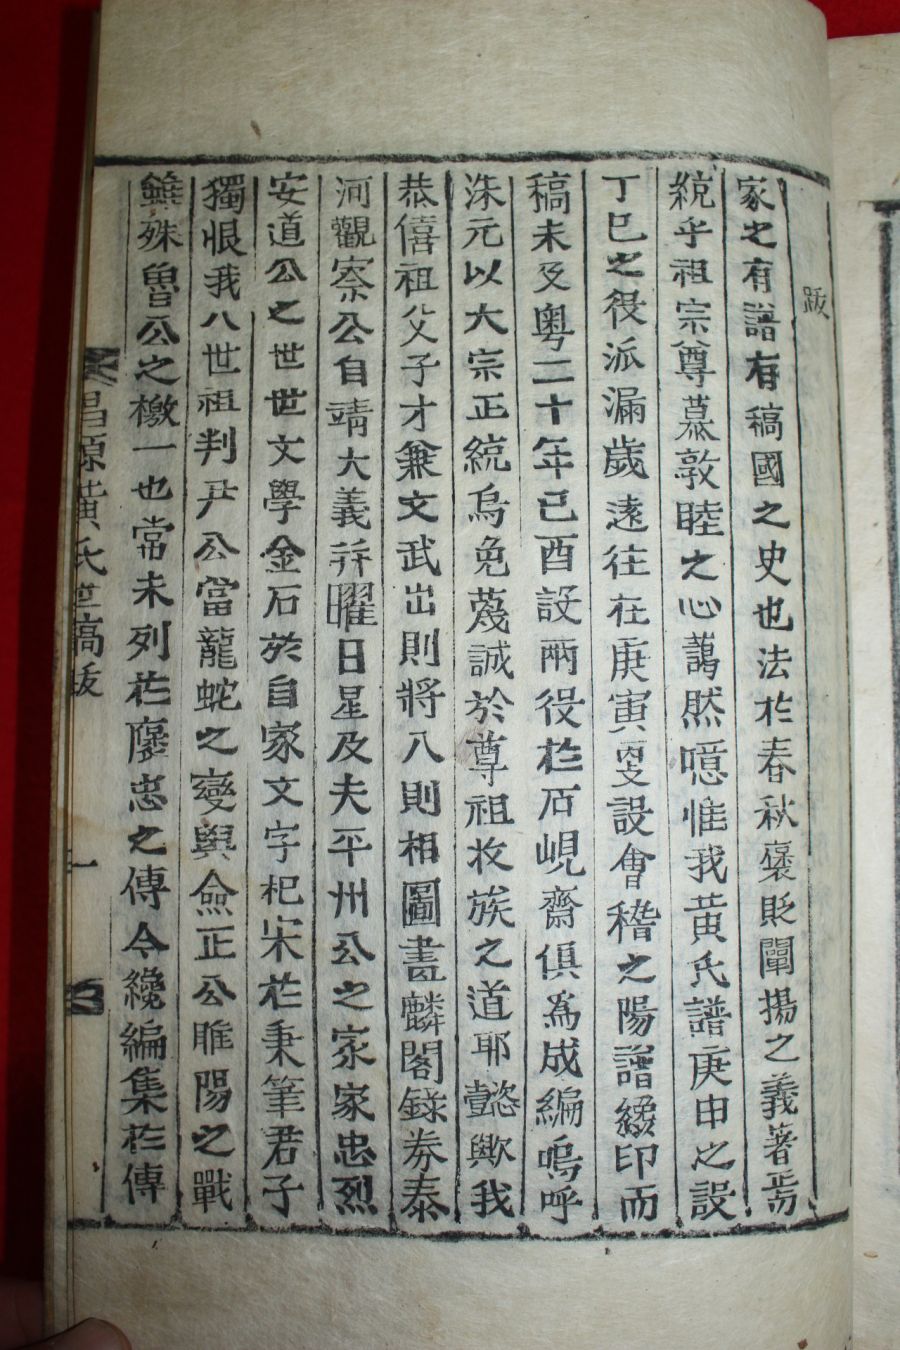 跋
家之有譜有稿國之史也法於春秋褒貶闡揚之義著焉
統乎祖宗尊慕敦睦之心藹然噫惟我黃氏譜庚申之設
丁巳之役派漏歲遠往在庚寅更設會稽之陽譜纔印而
稿未及粤二十年己酉設兩役於石峴齋俱爲成編嗚呼
洙元以大宗正統烏免蔑誠於尊祖收族之道耶懿歟我
恭僖祖父子才兼文武出則將入則相圖畫麟閣錄券泰
河觀察公自靖大義並曜日星及夫平州公之家家忠烈
安道公之世世文學金石於自家文字杞宋於秉筆君子
獨恨我八世祖判尹公當龍蛇之變與僉正公睢陽之戰
雖殊魯公之檄一也常未列於褒忠之傳今纔編集於傳
昌原黃氏世稿跋
一